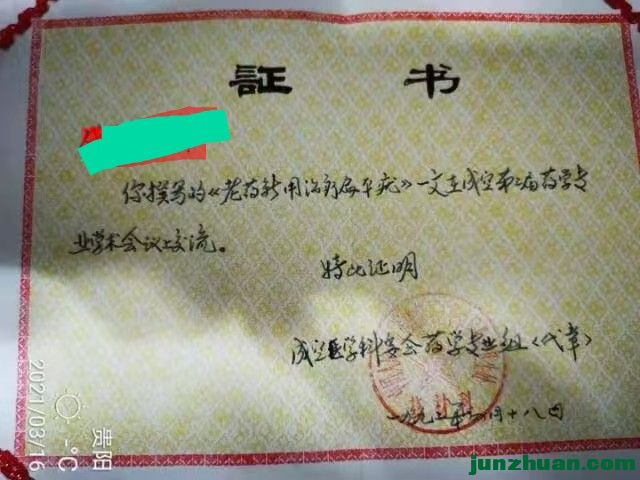 証 书
你撰写的《老药新用治疗扁平疣》一文在成空第二届药学专
业学术会议上交流。
特此证明
成空医学科委会药学专业组(代章)
一九九二年 月十八日
2021/03/16
-°C
贵阳
junzhuan.com